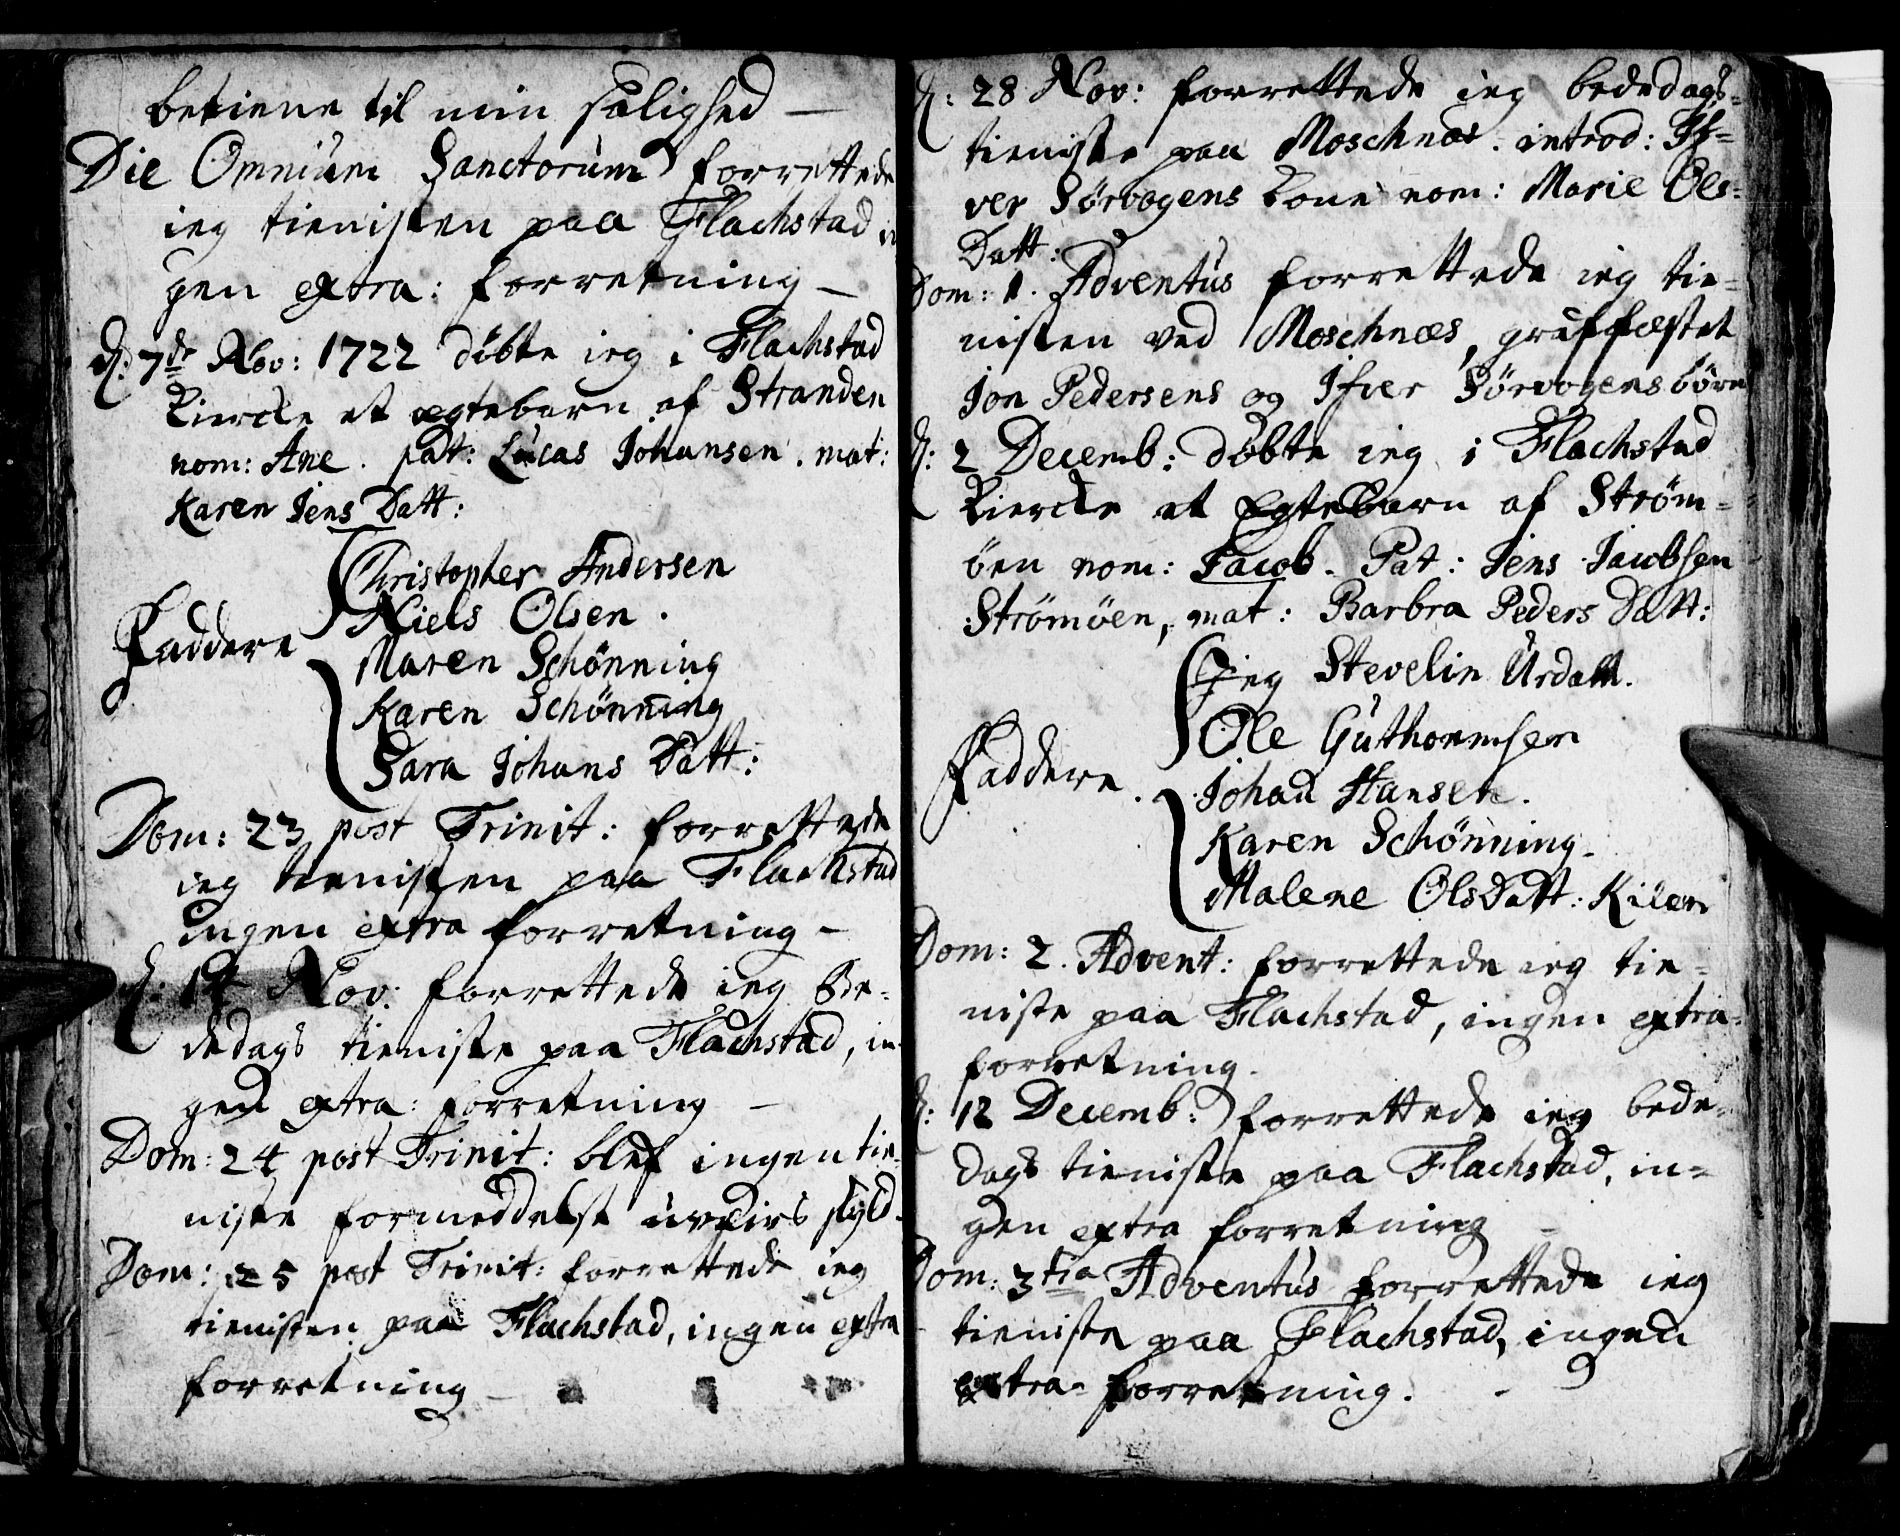 betiene til min salighed —
Die Omnium Sanctorum forrettede
ieg tienisten paa Flachstad in
gen extra: forretning —
d: 7de Nov: 1722 döbte ieg i Flachstad
Kircke et ægtebarn af Stranden
nom: Ane. pat: Lucas Johansen. mat:
Karen Jens Datt:
Christopher Andersen
Niels Olsen.
Faddere
Maren Schönning
Karen Schönning
Sara Johans Datt:
Dom: 23 post Trinit: forrettede
ieg tienisten paa Flachstad
ingen extra forretning —
d: 14 Nov: forrettede ieg Be-
dedags tieniste paa Flachstad, in-
gen extra: forretning —
Dom: 24 post Trinit: blef ingen tie-
niste formeddelst uveirs skyld.
Dom: 25 post Trinit: forrettede ieg
tienisten paa Flachstad, ingen extra
forretning —
d: 28 Nov: forrettede ieg bededags-
tieniste paa Moschnæs. introd: If-
ver Sørvogens Kone nom: Marie Ols-
Datt:
Dom: 1. Adventus forrettede ieg tie-
nisten ved Moschnæs, graffæstet
Jon Pedersens og Ifver Sörvogens börn
d: 2 Decemb: döbte ieg i Flachstad
Kiercke et Egtebarn af Ström-
öen nom: Jacob. Pat: Jens Jacobsen
Strömöen, mat: Barbra Peders Datt:
Jeg Stevelin Urdall.
Ole Guthormsen
Faddere.
Johan Hansen.
Karen Schönning.
Malene OlsDatt: Kilen
Dom: 2. Advent: forrettede ieg tie-
niste paa Flachstad, ingen extra-
forretning.
d: 12 Decemb: forrettede ieg bede-
dags tieniste paa Flachstad, in-
gen extra forretning —
Dom: 3tia Adventus forrettede ieg
tieniste paa Flachstad, ingen
extra- forretning.